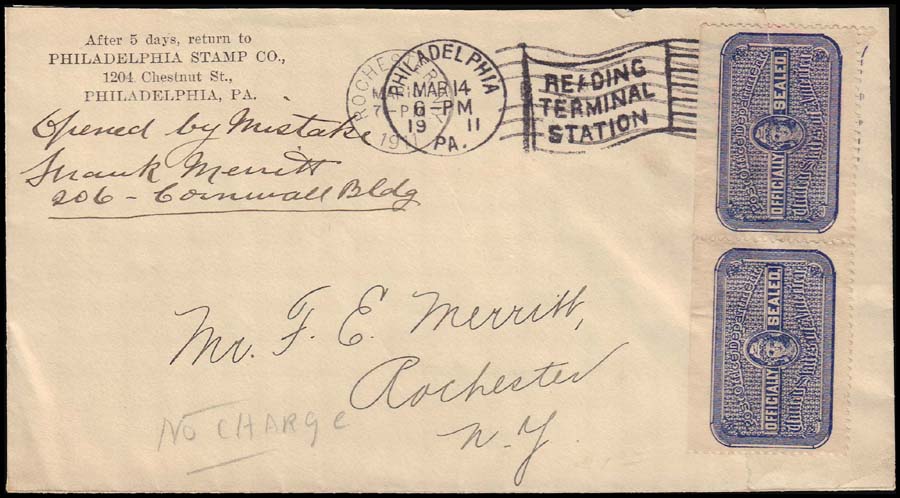 After 5 days, return to
PHILADELPHIA STAMP CO.,
1204 Chestnut St.,
PHILADELPHIA, PA.
Opened by Mistake
Frank Merritt
206 - Cornwall Bldg
ROCHESTER
7-PM
1911
PHILADELPHIA
MAR 14
6-PM
19 11
PA.
READING
TERMINAL
STATION
Post Office Department
OFFICIALLY SEALED.
United States of America
Post Office Department
OFFICIALLY SEALED.
United States of America
Mr. F. E. Merritt,
Rochester
N.Y.
NO CHARGE